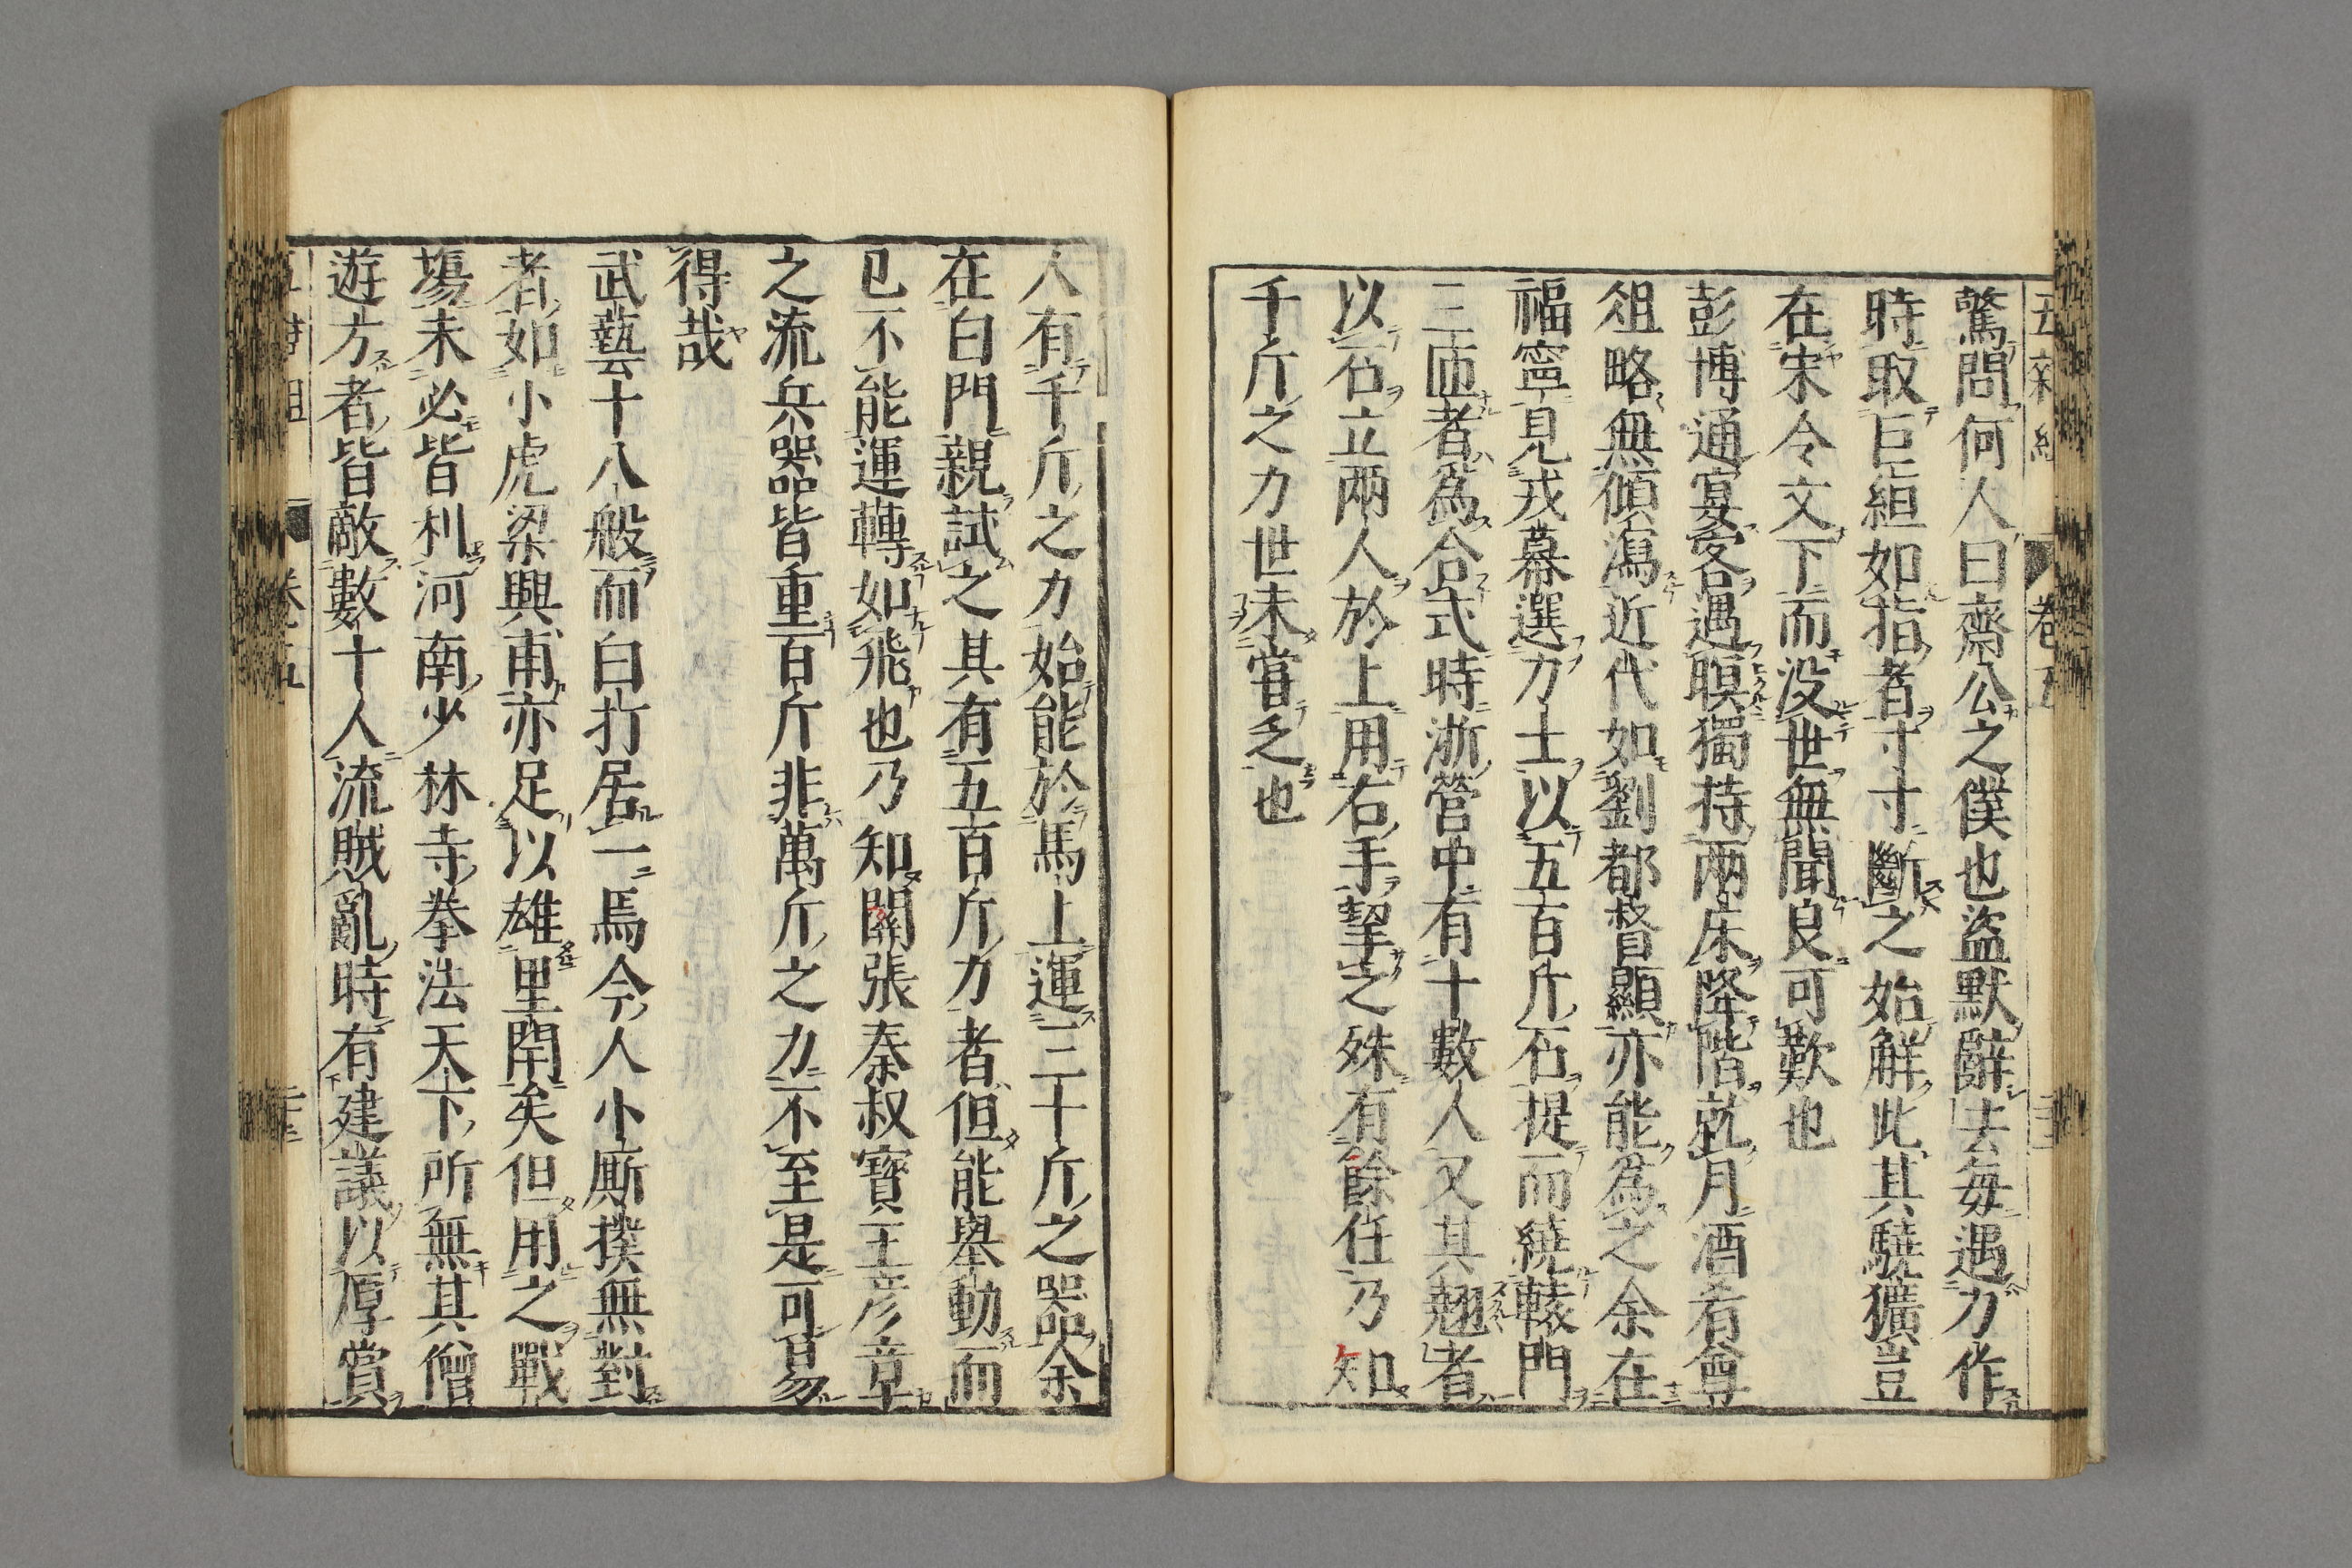 五雜組 卷五
驚問何人曰齋公之僕也盜默辭去毎遇力作
時取巨絙如指者寸寸斷之始解此其驍獷豈
在宋令文下而没世無聞良可歎也
彭博通宴客遇暝獨持兩床降階就月酒肴尊
俎略無傾瀉近代如劉都督顯亦能爲之余在
福寧見戎幕選力士以五百斤石提而繞轅門
三匝者爲合式時浙營中有十數人又其翹者
以石立兩人於上用右手挈之殊有餘任乃知
千斤之力世未嘗乏也
人有千斤之力始能於馬上運三十斤之器余
在白門親試之其有五百斤力者但能舉動而
已不能運轉如飛也乃知關張秦叔寶王彦章
之流兵器皆重百斤非萬斤之力不至是可易
得哉
武藝十八般而白打居一焉今人小廝撲無對
者如小虎梁興甫亦足以雄里閈矣但用之戰
場未必皆利河南少林寺拳法天下所無其僧
遊方者皆敵數十人流賊亂時有建議以厚賞
卷五